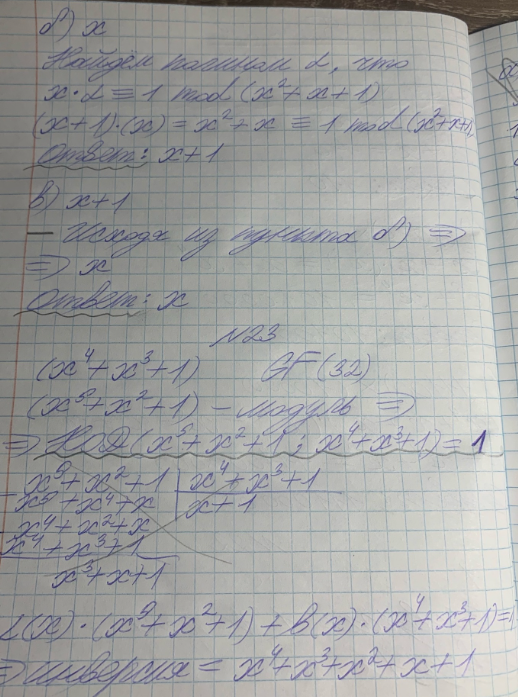 б) x
Найдём полином α, что
x · α ≡ 1 mod (x² + x + 1)
(x+1)·(x) = x² + x ≡ 1 mod (x²+x+1)
Ответ: x+1
в) x+1
— Исходя из пункта б) ⇒
⇒ x
Ответ: x
N23
(x⁴ + x³ + 1) GF(32)
(x⁵ + x² + 1) - модуль ⇒
⇒ НОД (x⁵ + x² + 1 ; x⁴ + x³ + 1) = 1
x⁵ + x² + 1 | x⁴ + x³ + 1
x⁵ + x⁴ + x | x + 1
x⁴ + x² + x
x⁴ + x³ + 1
x³ + x + 1
α(x) · (x⁵ + x² + 1) + β(x) · (x⁴ + x³ + 1) = 1
⇒ инверсия = x⁴ + x³ + x² + x + 1